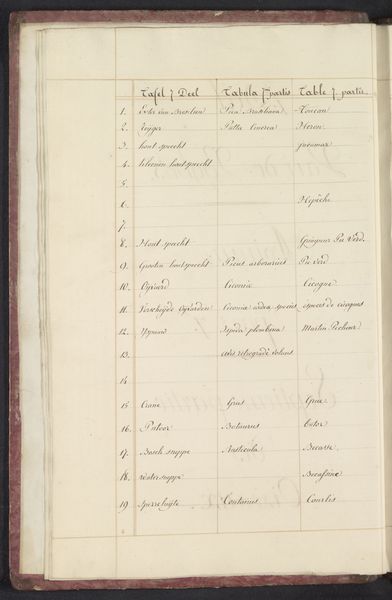 Tafel 7 Deel Tabula 7 partis Table 7 partie
1. Exter van Bresilien Pica Brasiliana Toucan
2. Reijger Pulla Cinerea Heron
3. hout specht
4. kleenen hout specht
5.
6. Hepiche
7.
8. Hout specht Grimpeur Pic Verd.
9. Grooten hout specht Picus arborarius Pic Verd
10. Oijevaard Ciconia Cicogne
11. Verscheijde Oijevarden Ciconia ardea species especes de cicognes
12. Ysvogel Ispida plembina Martin Pecheur
13. avis retrograde volans
14
15. Crane Grus Grue
16. Putoor Botaurus butor
17. Bosch snippe Rusticula Becasse
18. water snippe Becassine
19 Sperreluijte Courlis